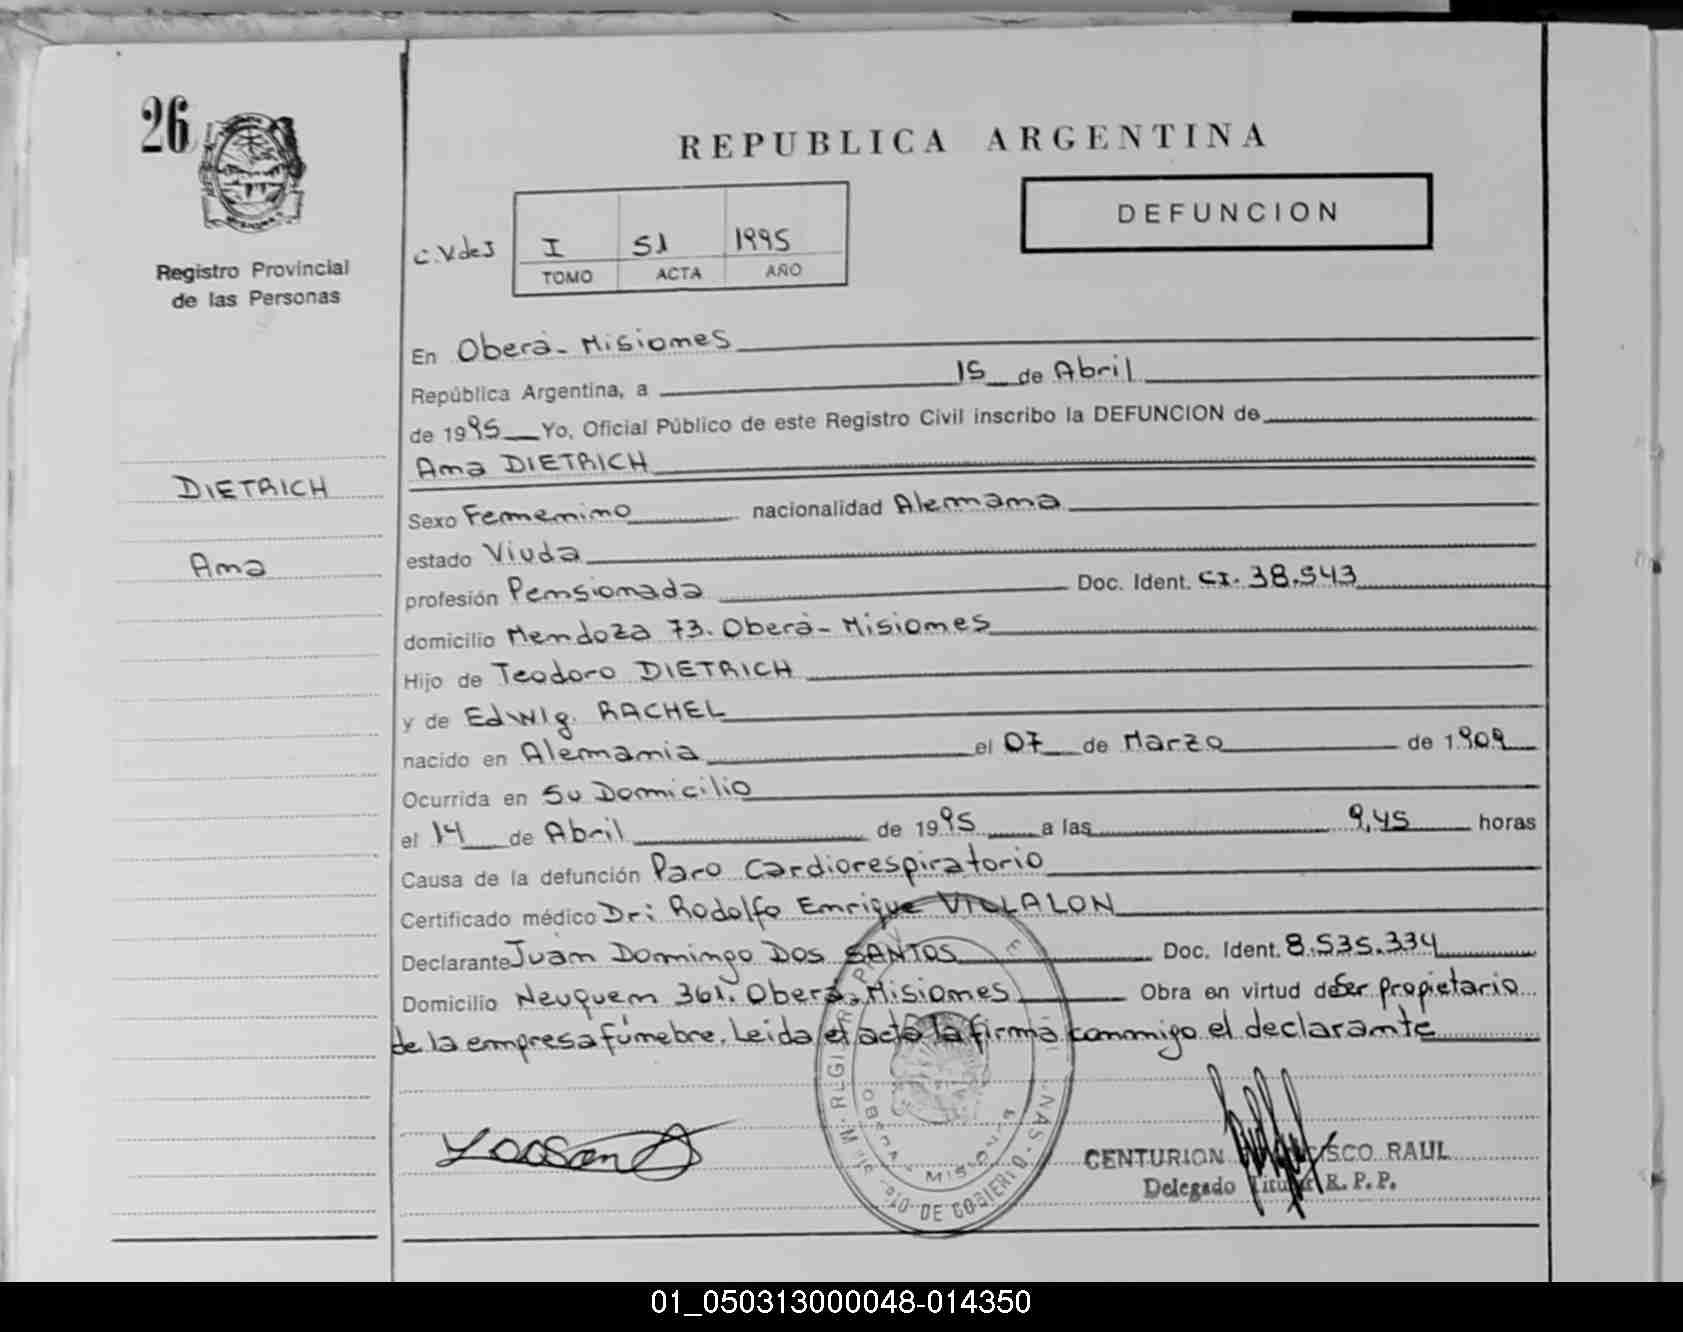 26
REPUBLICA ARGENTINA
DEFUNCION
C.V.de J I 51 1995
TOMO ACTA AÑO
Registro Provincial
de las Personas
En Oberà - Misiones
República Argentina, a 15 de Abril
de 1995 Yo, Oficial Público de este Registro Civil inscribo la DEFUNCION de
Ana DIETRICH
DIETRICH
Ana
Sexo Femenino nacionalidad Alemana
estado Viuda
profesión Pensionada Doc. Ident. CI. 38.543
domicilio Mendoza 73. Oberà - Misiones
Hijo de Teodoro DIETRICH
y de Edwig. RACHEL
nacido en Alemania el 07 de Marzo de 1909
Ocurrida en Su Domicilio
el 14 de Abril de 1995 a las 9,45 horas
Causa de la defunción Paro Cardiorespiratorio
Certificado médico Dr: Rodolfo Enrique VILLALON
Declarante Juan Domingo DOS SANTOS Doc. Ident. 8.535.334
Domicilio Neuquen 361. Oberà - Misiones Obra en virtud de Ser propietario
de la empresa fúnebre. Leida el acta la firma conmigo el declarante
OBERA - MISIONES
DE GOBIERNO
CENTURION RAUL
Delegado Titular R. P. P.
01_050313000048-014350